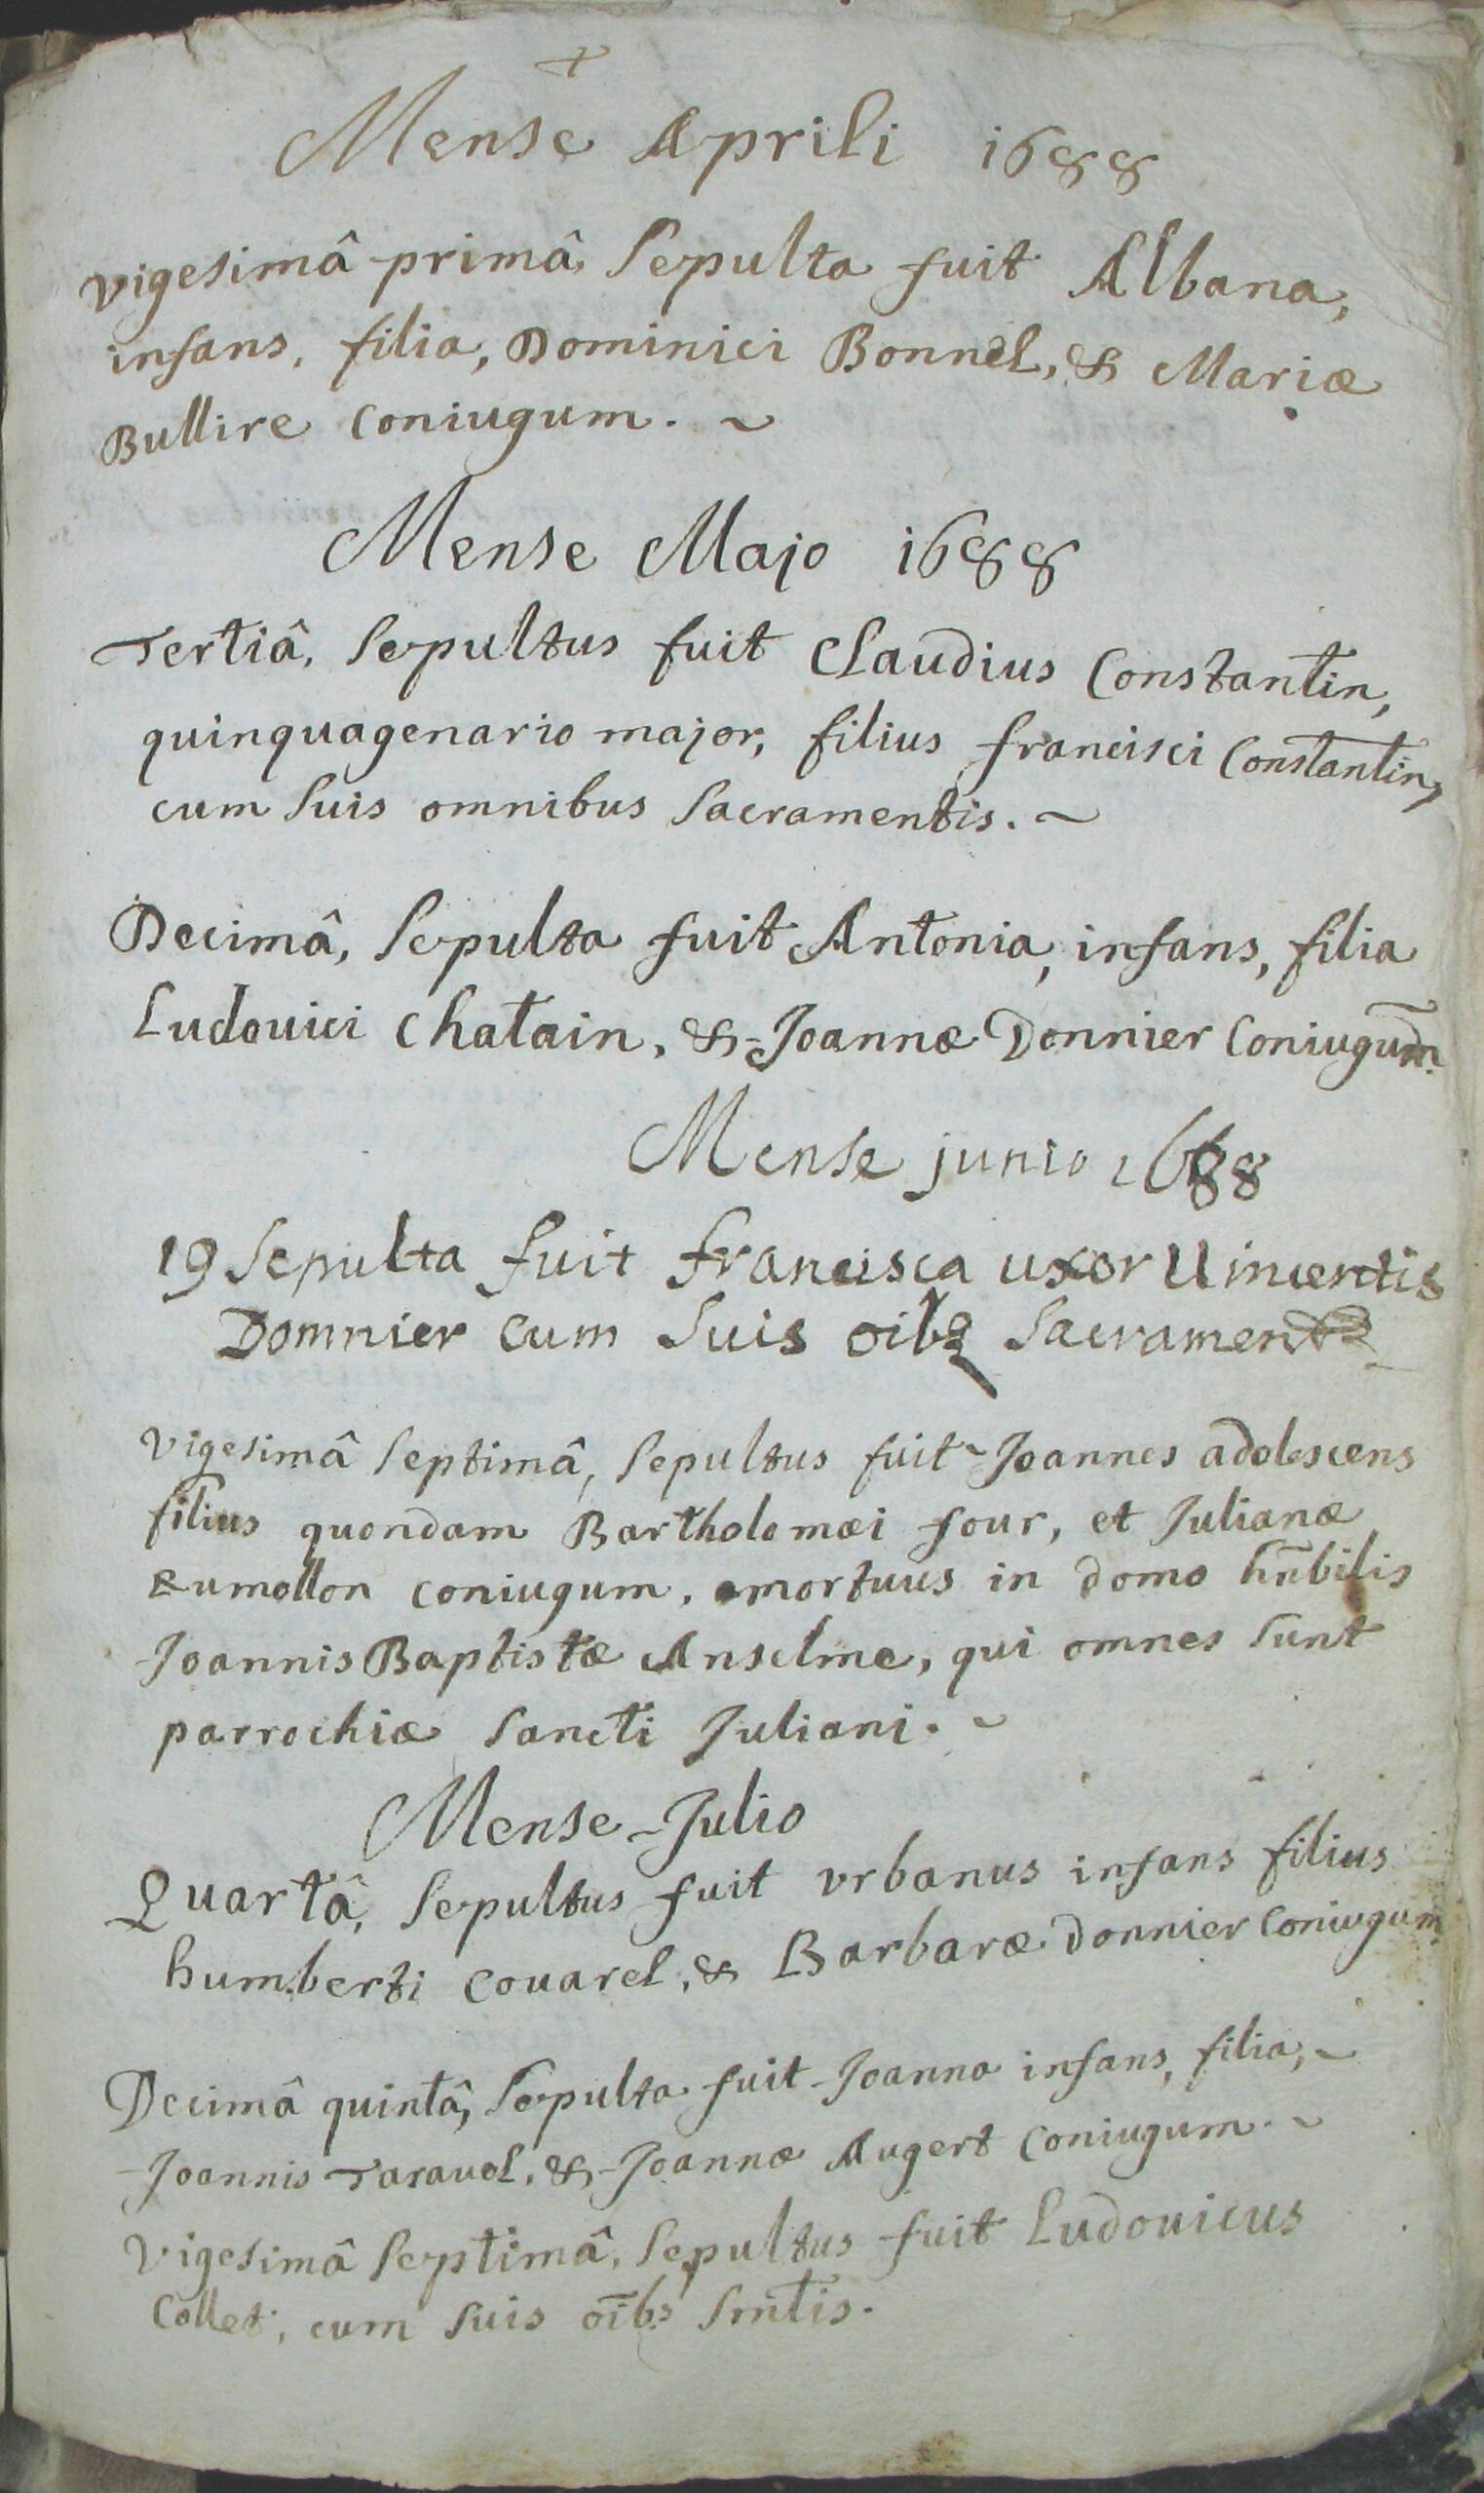 +
Mense Aprili 1688
vigesimâ primâ, Sepulta fuit Albana,
infans, filia, Dominici Bonnel, & Mariæ
Bullire coniugum. ~
Mense Majo 1688
Tertiâ, Sepultus fuit Claudius Constantin,
quinquagenario major, filius francisci Constantin,
cum Suis omnibus Sacramentis. ~
Decimâ, Sepulta fuit Antonia, infans, filia
Ludouici Chatain, & Joannæ Donnier Coniugum.
Mense junio 1688
19 Sepulta fuit francisca uxor Uincentis
Domnier cum Suis oibꝫ Sacrament
vigesimâ Septimâ, Sepultus fuit Joannes adolescens
filius quondam Bartholomæi four, et Julianæ
coniugum, mortuus in domo hñbilis
Joannis Baptistæ Anselme, qui omnes Sunt
parrochiæ Sancti Juliani. ~
Mense Julio
Quartâ, Sepultus fuit vrbanus infans filius
humberti couarel, & Barbaræ Donnier Coniugum
Decimâ quintâ, Sepulta fuit Joanna infans, filia, ~
Joannis Tarauel, & Joannæ Augert Coniugum. ~
Vigesimâ Septimâ, Sepultus fuit Ludouicus
Collet, cum Suis oĩbs Smĩtis.